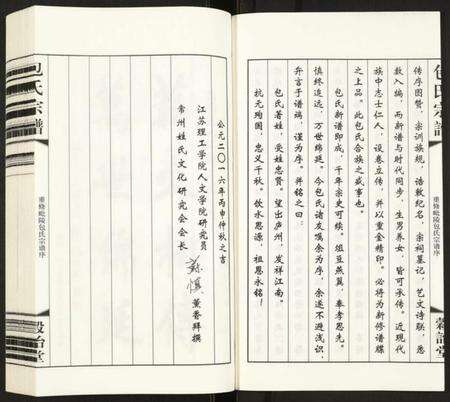 包氏宗譜
重修毗陵包氏宗谱序
穀詒堂
传序图赞，宗训族规，诰敕纪名，宗祠墓记，艺文诗联，悉
数入编，而新谱与时代同步，生男养女，皆可承传。近现代
族中志士仁人，设卷立传，并以重金精印。必将为新修谱牒
之上品。此包氏合族之盛事也。
包氏新谱印成，千年宗史可续。俎豆燕翼，奉孝思先。
慎终追远，万世绵延。今包氏诸友嘱余为序，余遂不避浅识，
弁言于谱端，谨为序。并铭之曰：
包氏著姓，受姓忠贤。望出庐州，发祥江南。
抗元殉国，忠义千秋。饮水思源，祖恩永铭！
公元二〇一六年丙申仲秋之吉
江苏理工学院人文学院研究员
常州姓氏文化研究会会长
苏慎 薰香拜撰
包氏宗譜
重修毗陵包氏宗谱序
穀詒堂